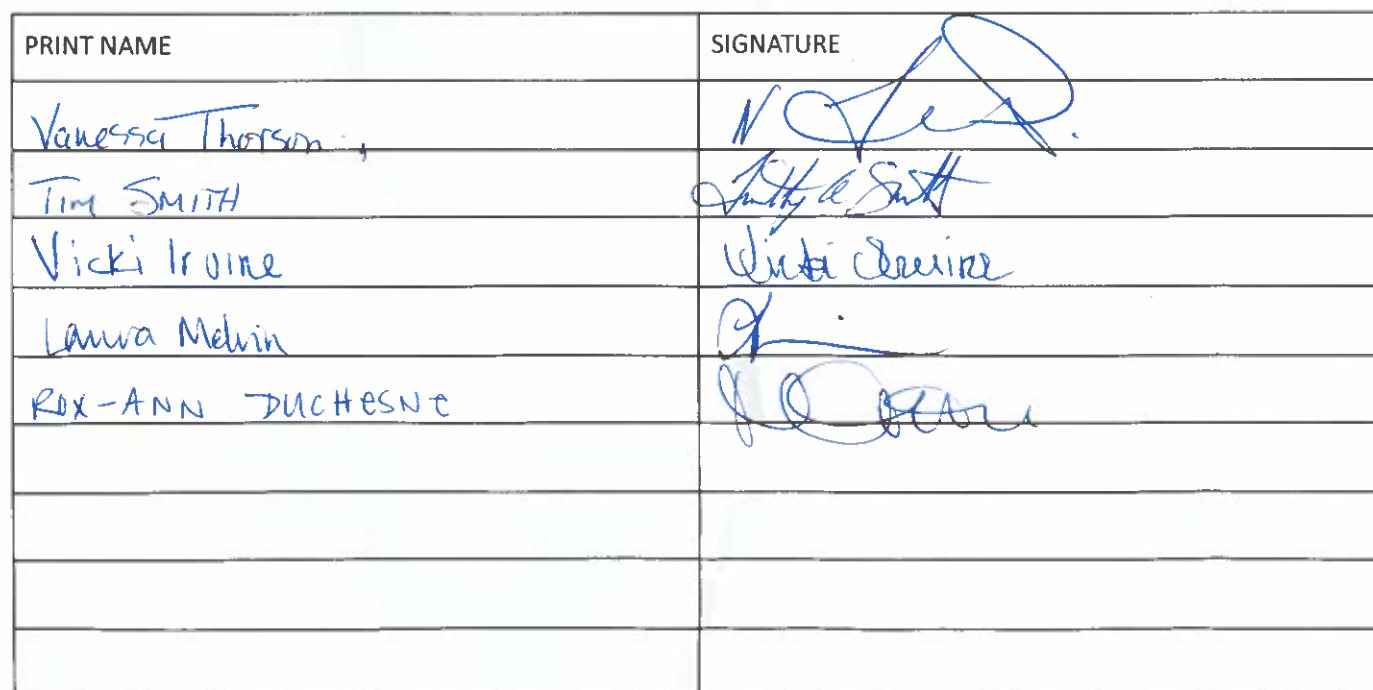 PRINT NAME SIGNATURE
Vanessa Thorson
TIM SMITH Smith
Vicki Irvine Vicki Irvine
Laura Melvin
ROX-ANN DUCHESNE